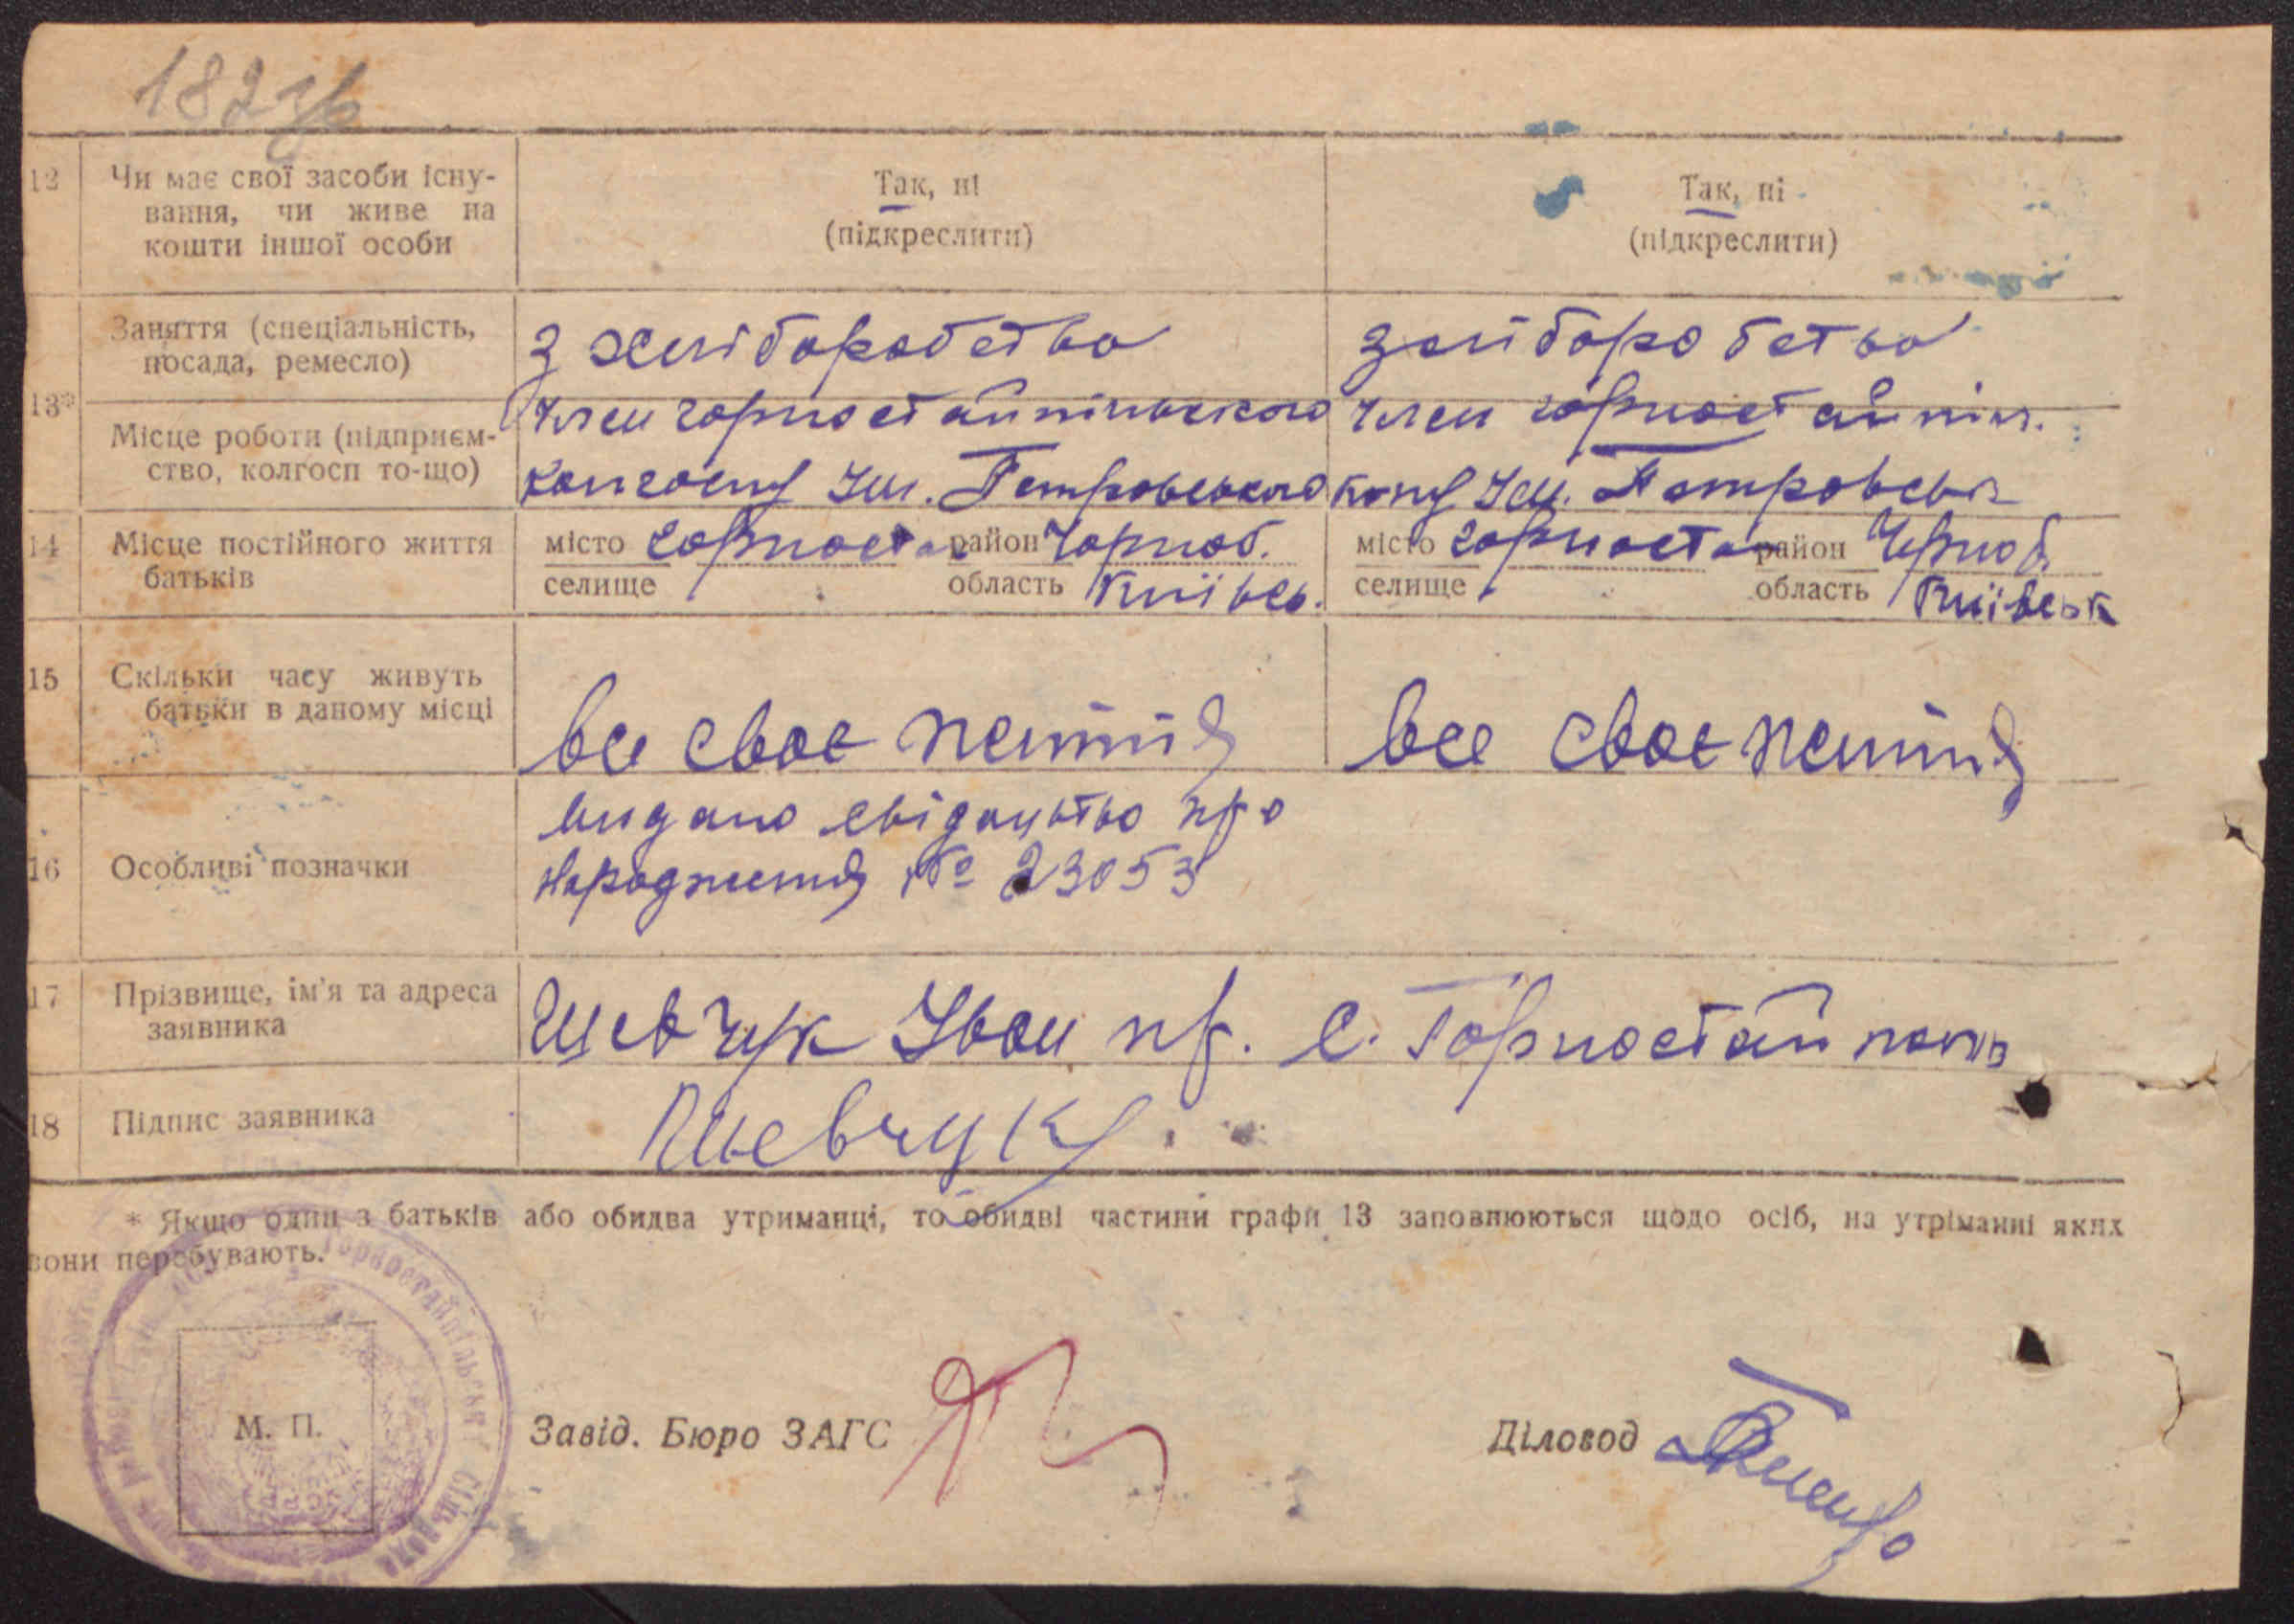 182 зв
12 Чи має свої засоби існу-
вання, чи живе на
кошти іншої особи
Так, ні
(підкреслити)
Так, ні
(підкреслити)
13* Заняття (спеціальність,
посада, ремесло)
з хліборобства
з хліборобства
Місце роботи (підприєм-
ство, колгосп то-що)
Член горностайпільського
колгоспу Ім. Петровського
Член горностайпіл.
Ім. Петровськ
14 Місце постійного життя
батьків
місто горноста район Чорноб.
селище область Київсь.
місто горноста район Чорноб.
селище область Київськ
15 Скільки часу живуть
батьки в даному місці
все своє життя
все своє життя
16 Особливі позначки
видано свідоцьтво про
народження № 23053
17 Прізвище, ім'я та адреса
заявника
Шевчук Іван пр. с. Горностайполь
18 Підпис заявника
Шевчук
* Якщо один з батьків або обидва утриманці, то обидві частини графи 13 заповнюються щодо осіб, на утріманні яких
вони перебувають.
Горностайпільська сільрада
М. П.
Завід. Бюро ЗАГС
Діловод